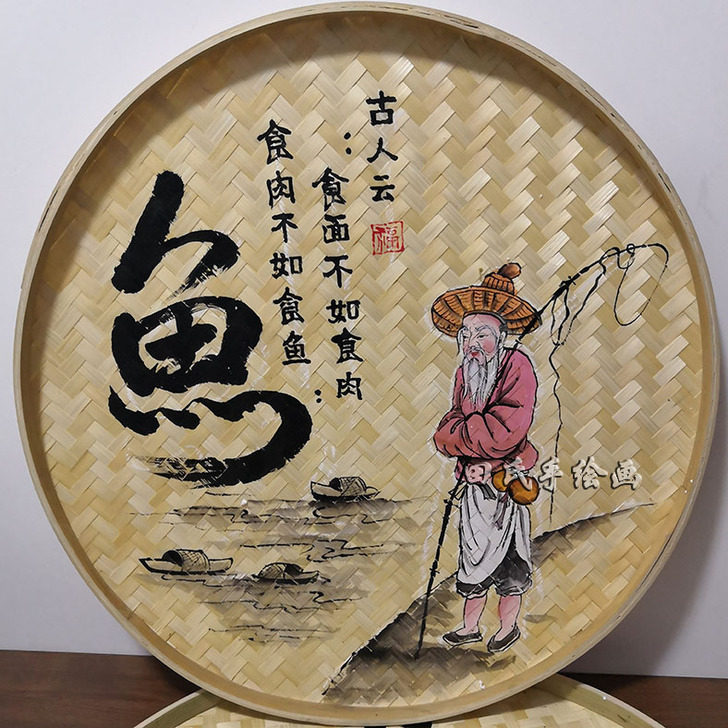 古人云
：食面不如食肉：
食肉不如食鱼
魚
福
田氏手绘画